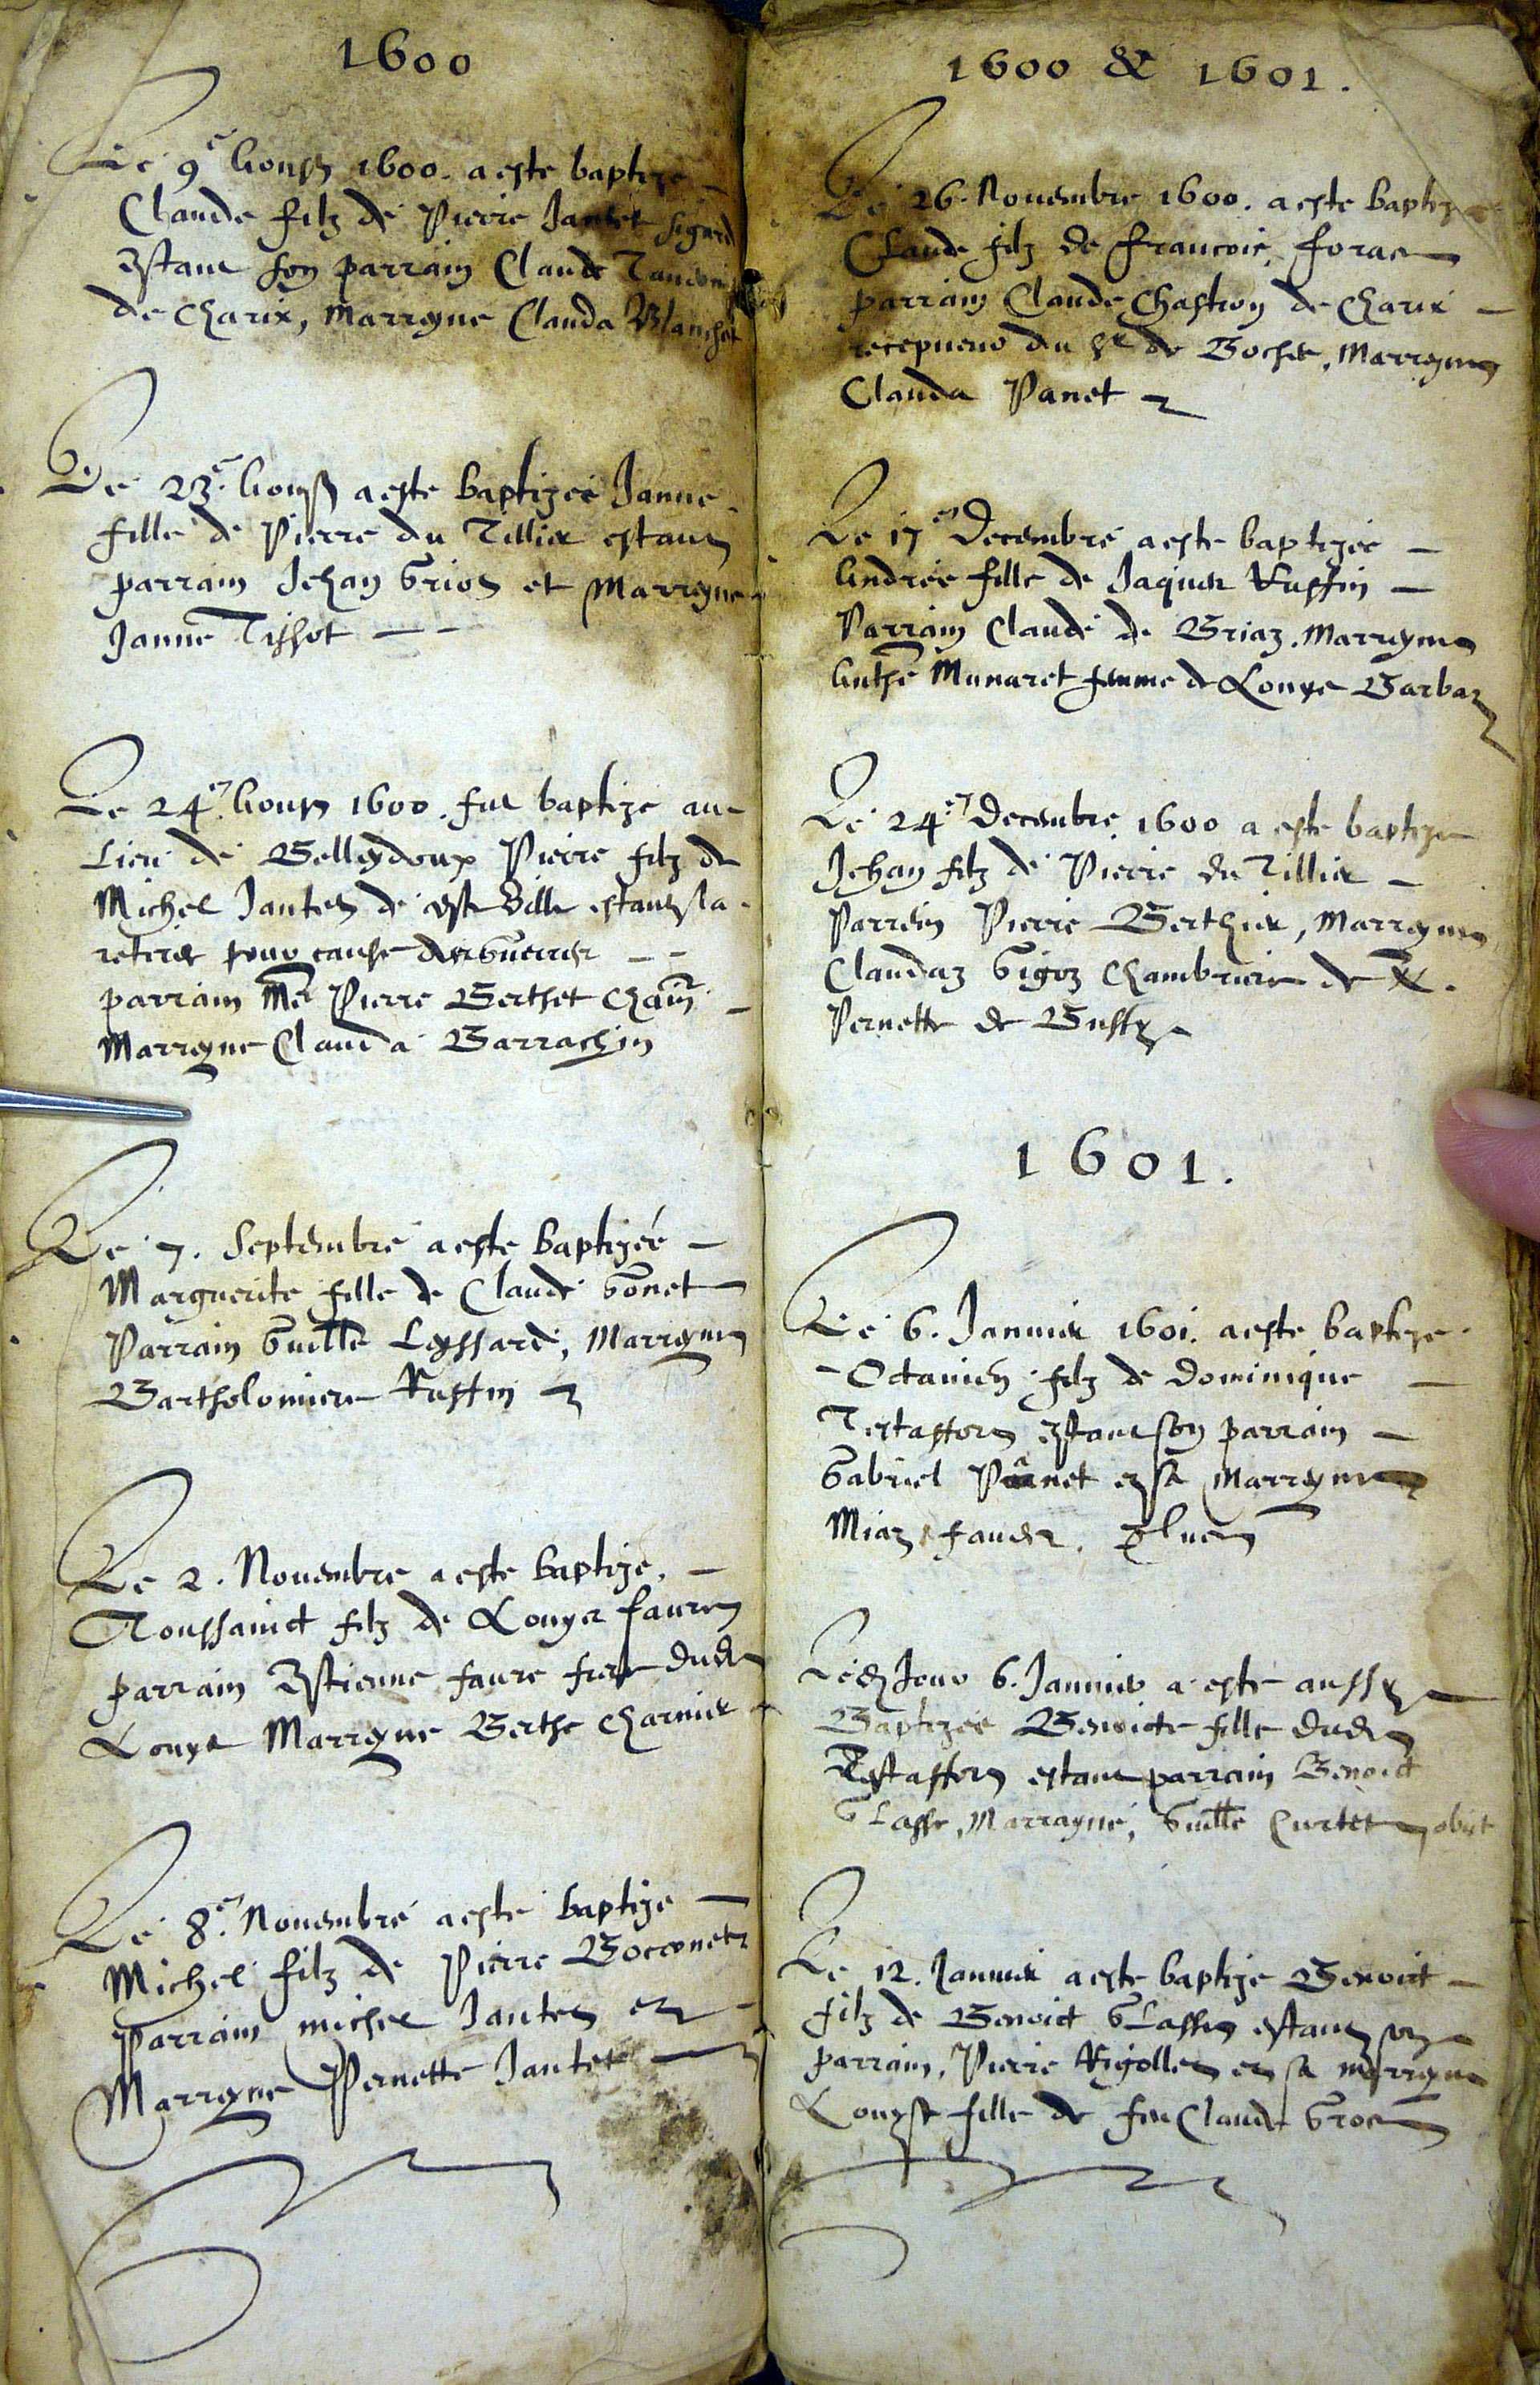 1600
Le 9e Aoust 1600. a este baptize
Claude filz de Pierre Jantet
Estant son parrain Claude
de Charix, Marreyne Clauda Blanchet
Le 23e Aoust a este baptizee Janne
fille de Pierre du Tillier estant
parrain Jehan Griot et Marreyne
Janne Tissot
Le 24e Aoust 1600. fut baptize au
Lieu de Belleydoux Pierre filz de
Michel Jantet de cest Ville estant la
retirer pour cause des Guerres
parrain Me Pierre Berthet
Marreyne Clauda Barrachin
Le 7. Septembre a este baptizée
Marguerite fille de Claude Gonet
Parrain Guille Leyssard, Marreyne
Bartholomiere Ruffin
Le 2. Novembre a este baptize.
Toussainct filz de Louys faure
parrain Estienne faure frere dudit
Louys Marreyne Berthe Charnier
Le 8e Novembre a este baptize
Michel filz de Pierre Bocconet
parrain michel Jantet et
Marreyne Pernette Jantet
1600 & 1601.
Le 26. Novembre 1600. a este baptize
Claude filz de francois forat
parrain Claude Chastron de Charix
recepveur du Sr de Bochet, Marreyne
Clauda Panet
Le 17e Decembre a este baptizée
Andree fille de Jaques Ruffin
Parrain Claude de Briaz. Marreyne
Anthe Munaret femme de Louys Barbaz
Le 24e Decembre 1600 a este baptize
Jehan filz de Pierre du Tillier
Parrein Pierre Berthier, Marreyne
Claudaz Gigoz chambriere de
Pernette de Bussy
1601.
Le 6. Janvier 1601. a este baptize
Octavien filz de Dominique
Testaffort Estant son parrain
Gabriel Panet et sa Marreyne
Miaz faure.
Ledit Jour 6. Janvier a este aussy
Baptizee Benoicte fille dudit
Testaffort estant parrain Benoict
Glasse, Marrayne, Guille Curtet obiit
Le 12. Janvier a este baptize Benoict
filz de Benoict Glasse estant son
parrain, Pierre Rigollet et sa marreyne
Louyse fille de feu Claude Groz